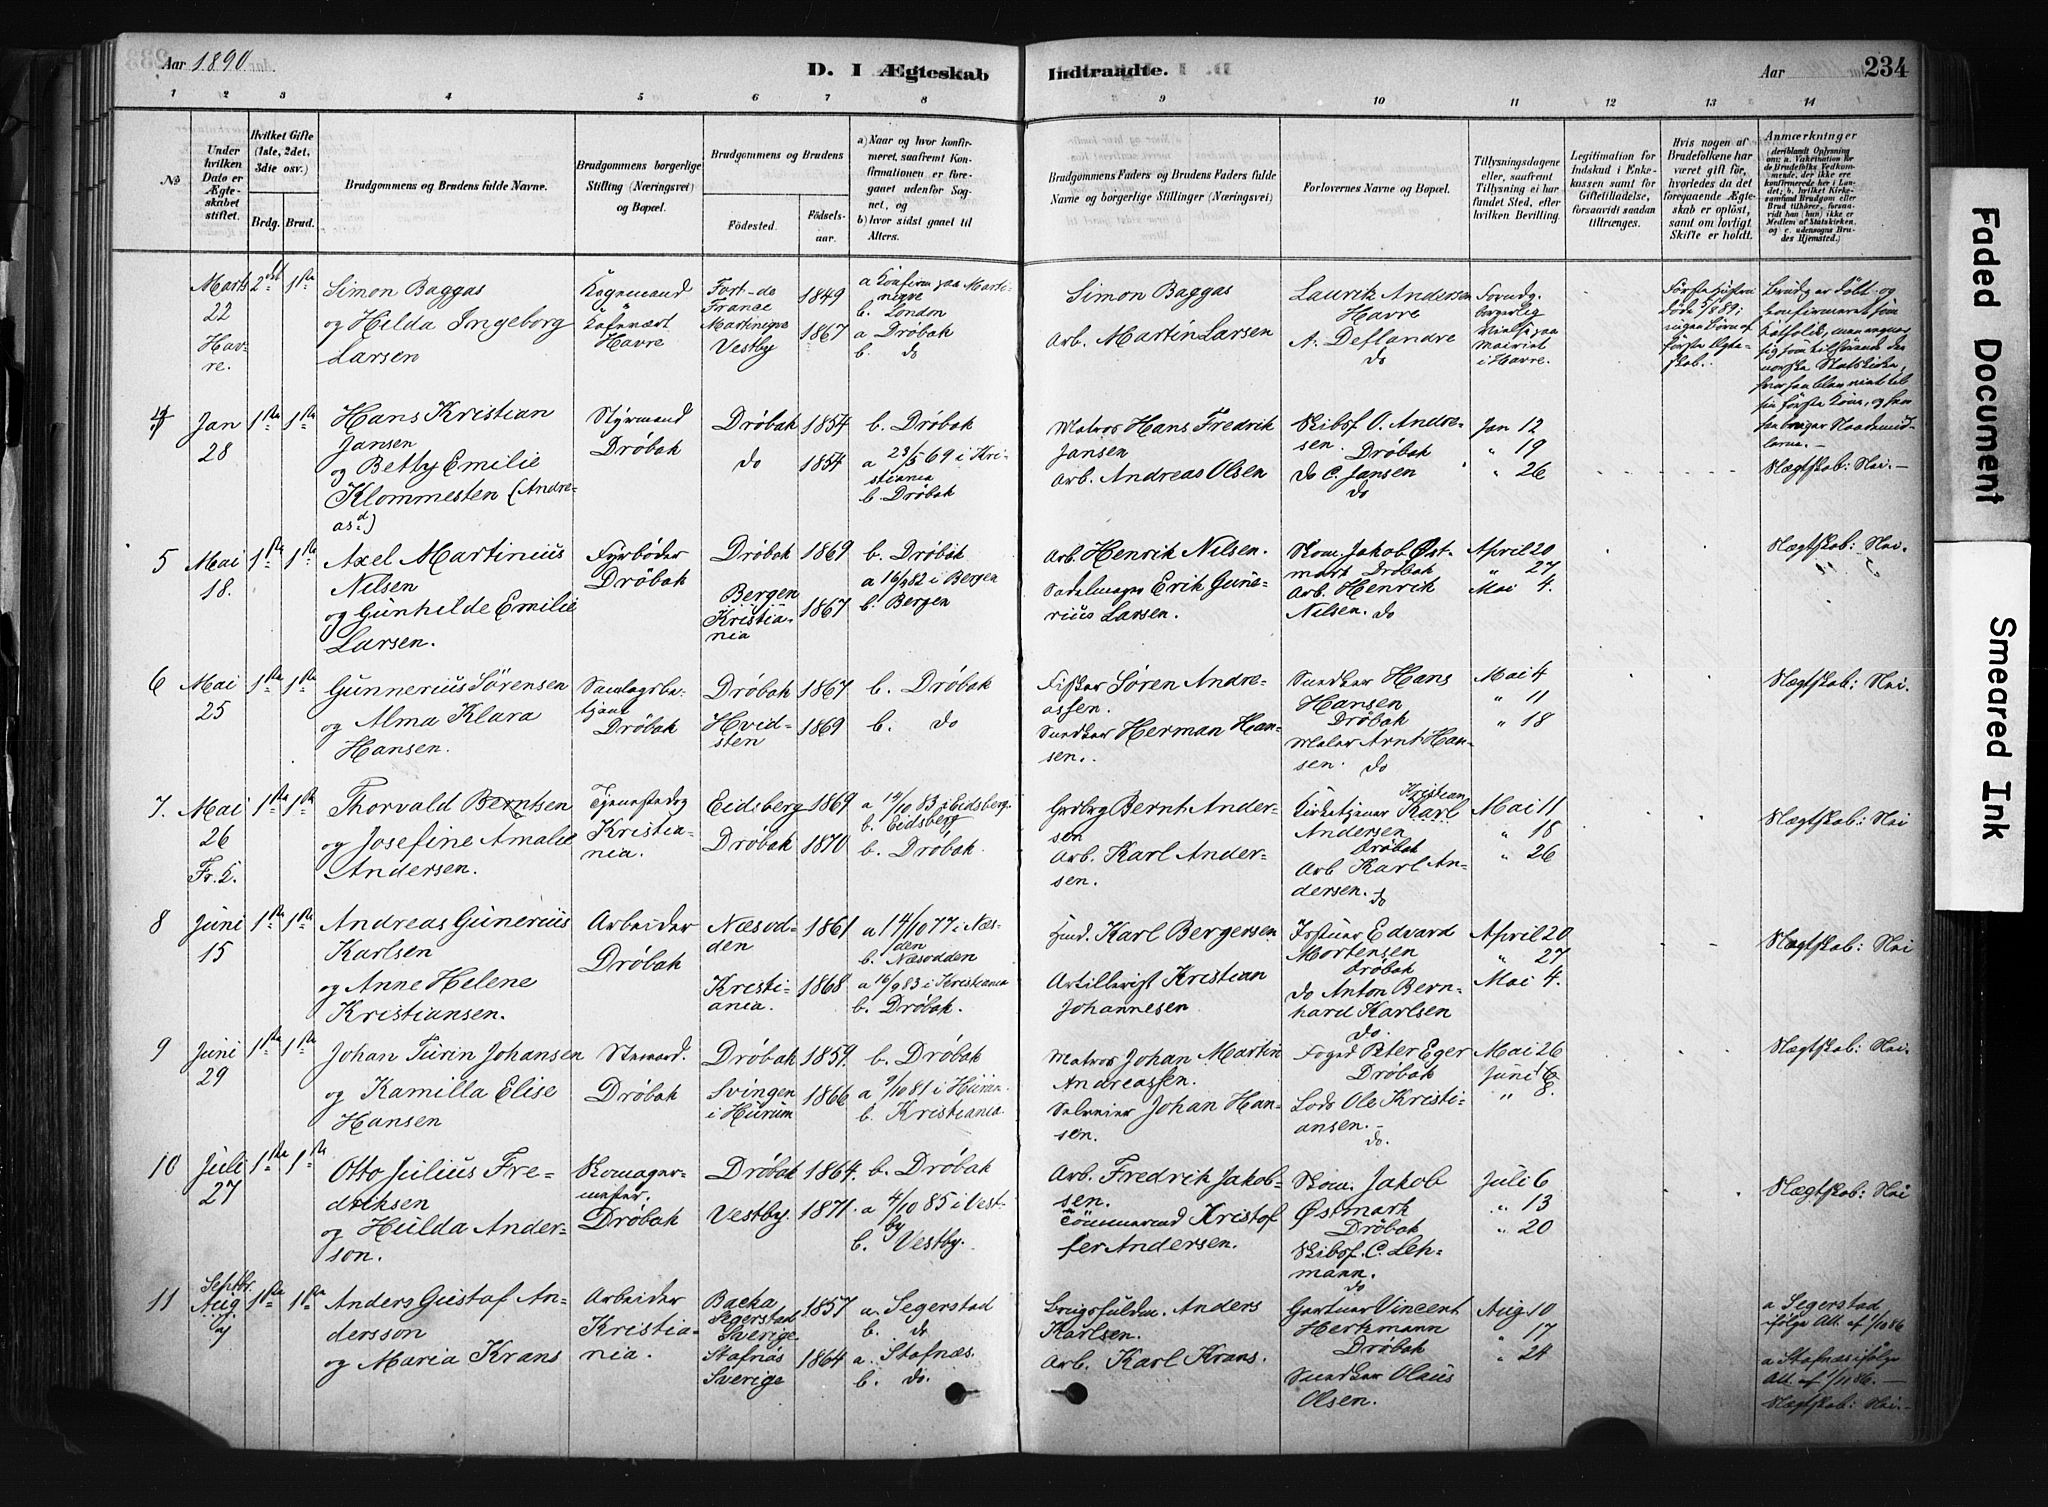 Aar 1890
D. I Ægteskab
Indtraadte.
Aar
234
1 2 3 4 5 6 7 8
8 9 10 11 12 13 14
No
Under hvilken Dato er Ægteskabet stiftet.
Hvilket Gifte (1ste, 2det, 3die osv.)
Brdg. Brud.
Brudgommens og Brudens fulde Navne.
Brudgommens borgerlige Stilling (Næringsvei) og Bopæl.
Brudgommens og Brudens
Fødested.
Fødselsaar.
a) Naar og hvor konfirmeret, saafremt Konfirmationen er foregaaet udenfor Sognet, og
b) hvor sidst gaaet til Alters.
Brudgommens Faders og Brudens Faders fulde Navne og borgerlige Stillinger (Næringsvei)
Forlovernes Navne og Bopæl.
Tillysningsdagene eller, saafremt Tillysning ei har fundet Sted, efter hvilken Bevilling.
Legitimation for Indskud i Enkekassen samt for Giftetilladelse, forsaavidt saadan tiltrænges.
Hvis nogen af Brudefolkene har været gift før, hvorledes da det foregaaende Ægteskab er opløst, samt om lovligt Skifte er holdt.
Anmærkninger
Marts 22 Havre.
2det 1ste
Simon Baggas
og Hilda Ingeborg
Larsen
Havre
Fort-de
France
Martinique
Vestby
1849
1867
b. London
a Drøbak
b. do
Simon Baggas
Arb. Martin Larsen
Laurits Andersen
Havre
A. Deflandre
do
i Havre.
4 Jan 28 1ste 1ste
Hans Kristian
Jansen
og Betty Emilie
Klommesten (Andreasd)
Styrmand
Drøbak
Drøbak 1854
do 1854
b. Drøbak
a 23/5 69 i Kristiania
b. Drøbak
Matros Hans Fredrik
Jansen
Arb. Andreas Olsen
Skibsf. O. Andresen. Drøbak
do C. Jansen
do
Jan 12
" 19
" 26
Slægtskab: Nei.
5 Mai 18. 1ste 1ste
Axel Martinius
Nilsen
og Gunhilde Emilie
Larsen.
Fyrbøder
Drøbak
Drøbak 1869
Bergen
Kristiania
1867
b. Drøbak
a 16/9 82 i Bergen
b. Bergen
Arb. Henrik Nilsen.
Sadelmager Erik Gunerius Larsen.
Skom. Jakob Østmark Drøbak
Arb. Henrik
Nilsen. do
April 20
" 27
Mai 4.
Slægtskab: Nei.
6 Mai 25 1ste 1ste
Gunnerius Sørensen
og Alma Klara
Hansen.
Samlagsbetjent
Drøbak
Drøbak 1867
Hvidsten 1869
b. Drøbak
b. do
Fisker Søren Andreassen.
Snedker Herman Hansen.
Snedker Hans
Hansen
Drøbak
Maler Arnt Hansen. do
Mai 4
" 11
" 18
Slægtskab: Nei.
7. Mai 26 Fr. K. 1ste 1ste
Thorvald Berntsen
og Josefine Amalie
Andersen.
Kristiania.
Eidsberg 1869
Drøbak 1870
a 14/10 83 i Eidsberg.
b. Eidsberg
b. Drøbak.
Grdbrg Bernt Andersen
Arb. Karl Andersen.
Kirketjener Kristian Karl
Andersen
Drøbak
Arb Karl Andersen. do
Mai 11
" 18
" 26
Slægtskab: Nei
8 Juni 15 1ste 1ste
Andreas Gunerius
Karlsen
og Anne Helene
Kristiansen.
Arbeider
Drøbak
Næsodden 1861
Kristiania. 1868
a 14/10 77 i Næsodden
b. Næsodden
a 16/9 83 i Kristiania
b. Drøbak.
Karl Bergersen
Artillerist Kristian
Johannesen
Edvard
Mortensen
Drøbak
do Anton Bernhard Karlsen
do.
April 20
" 27
Mai 4.
Slægtskab: Nei
9 Juni 29 1ste 1ste
Johan Turin Johansen
og Kamilla Elise
Hansen
Steward.
Drøbak
Drøbak 1859.
Svingen
i Hurum 1866
b. Drøbak
a 9/10 81 i Hurum.
b. Kristiania
Matros Johan Martin
Andreassen.
Selveier Johan Hansen.
Foged Peter Eger
Drøbak
Lods Ole Kristiansen.
do.
Mai 26
Juni 6
" 8.
Slægtskab: Nei.
10 Juli 27 1ste 1ste
Otto Julius Fredriksen
og Hulda Anderson.
Skomagermester.
Drøbak
Drøbak 1864.
Vestby. 1871.
b. Drøbak
a 4/10 85 i Vestby
b. Vestby.
Arb. Fredrik Jakobsen.
Tømmermand Kristoffer Andersen.
Skom. Jakob
Østmark
Drøbak
Skibsf. C. Lehmann.
do
Juli 6
" 13
" 20
Slægtskab: Nei
11 Septbr. Aug. 1ste 1ste
Anders Gustaf Andersson
og Maria Krans
Arbeider
Kristiania.
Backa
Segerstad
Sverige 1857
Stafnäs
Sverige 1864
a. Segerstad
b. do
a. Stafnæs.
b. do.
Brugsfuldm. Anders
Karlsen.
Arb. Karl Krans.
Gartner Vincent
Herkmann
Drøbak
Snedker Olaus
Olsen.
Aug. 10
" 17
" 24
a Segerstad
ifølge Att. af 1/10 86
a Stafnæs ifølge
Att. af 1/11 86.
Slægtskab: Nei.
Faded Document
Smeared Ink